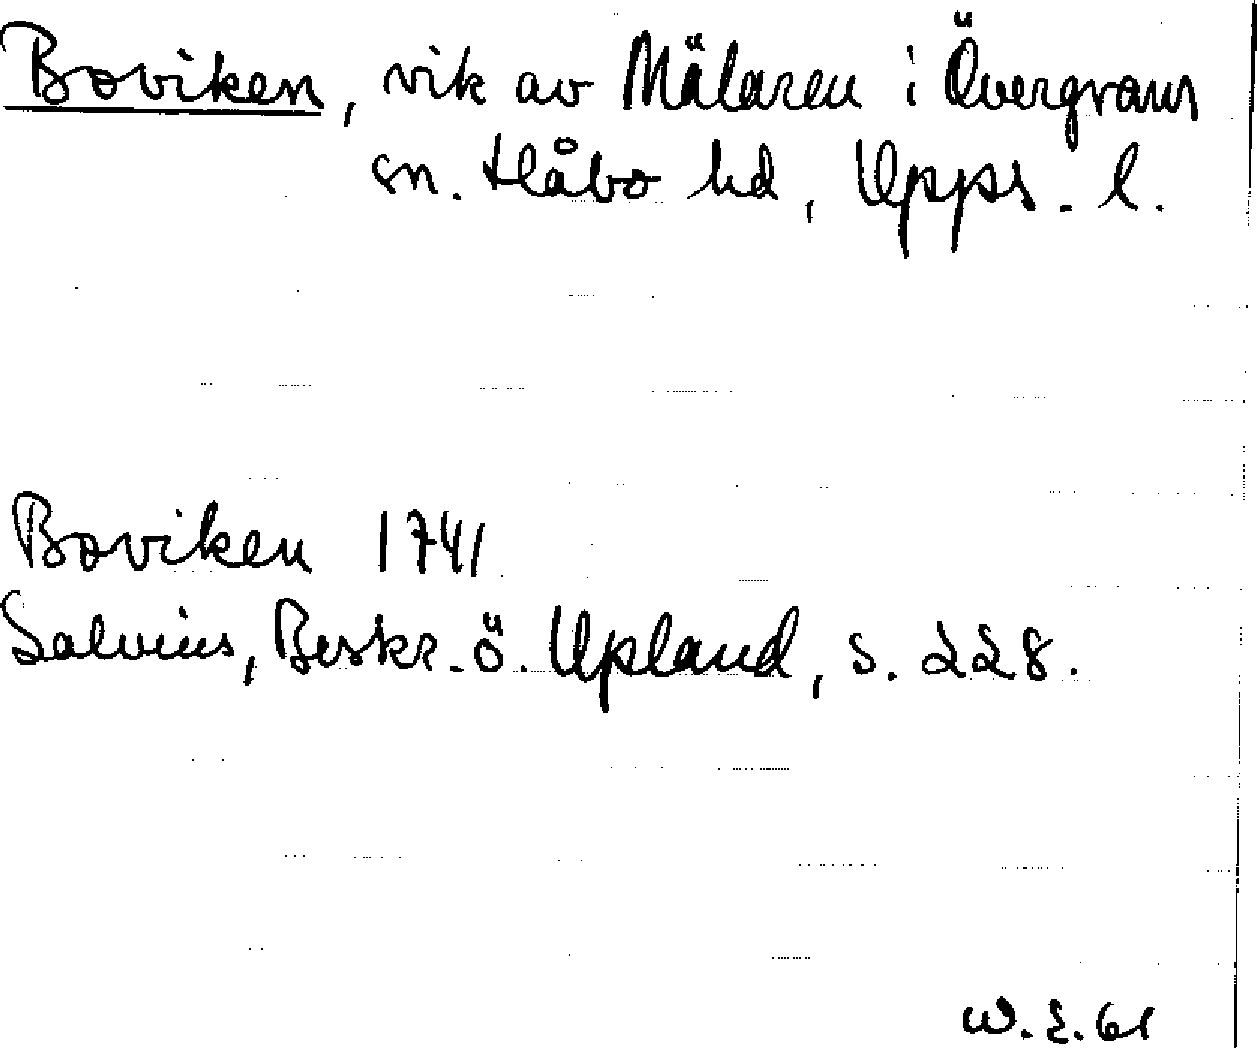 Boviken, vik av Mälaren i Övergrans
sn. Håbo hd, Upps. l.
Boviken 1741
Salvius, Beskr. ö. Upland, s. 228.
W.E. 61